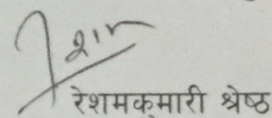 रेशमकुमारी श्रेष्ठ